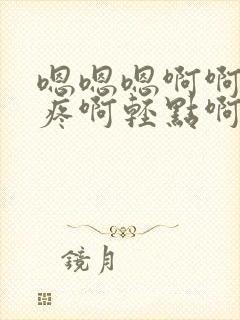 嗯嗯嗯啊啊
疼啊轻點啊
鏡月